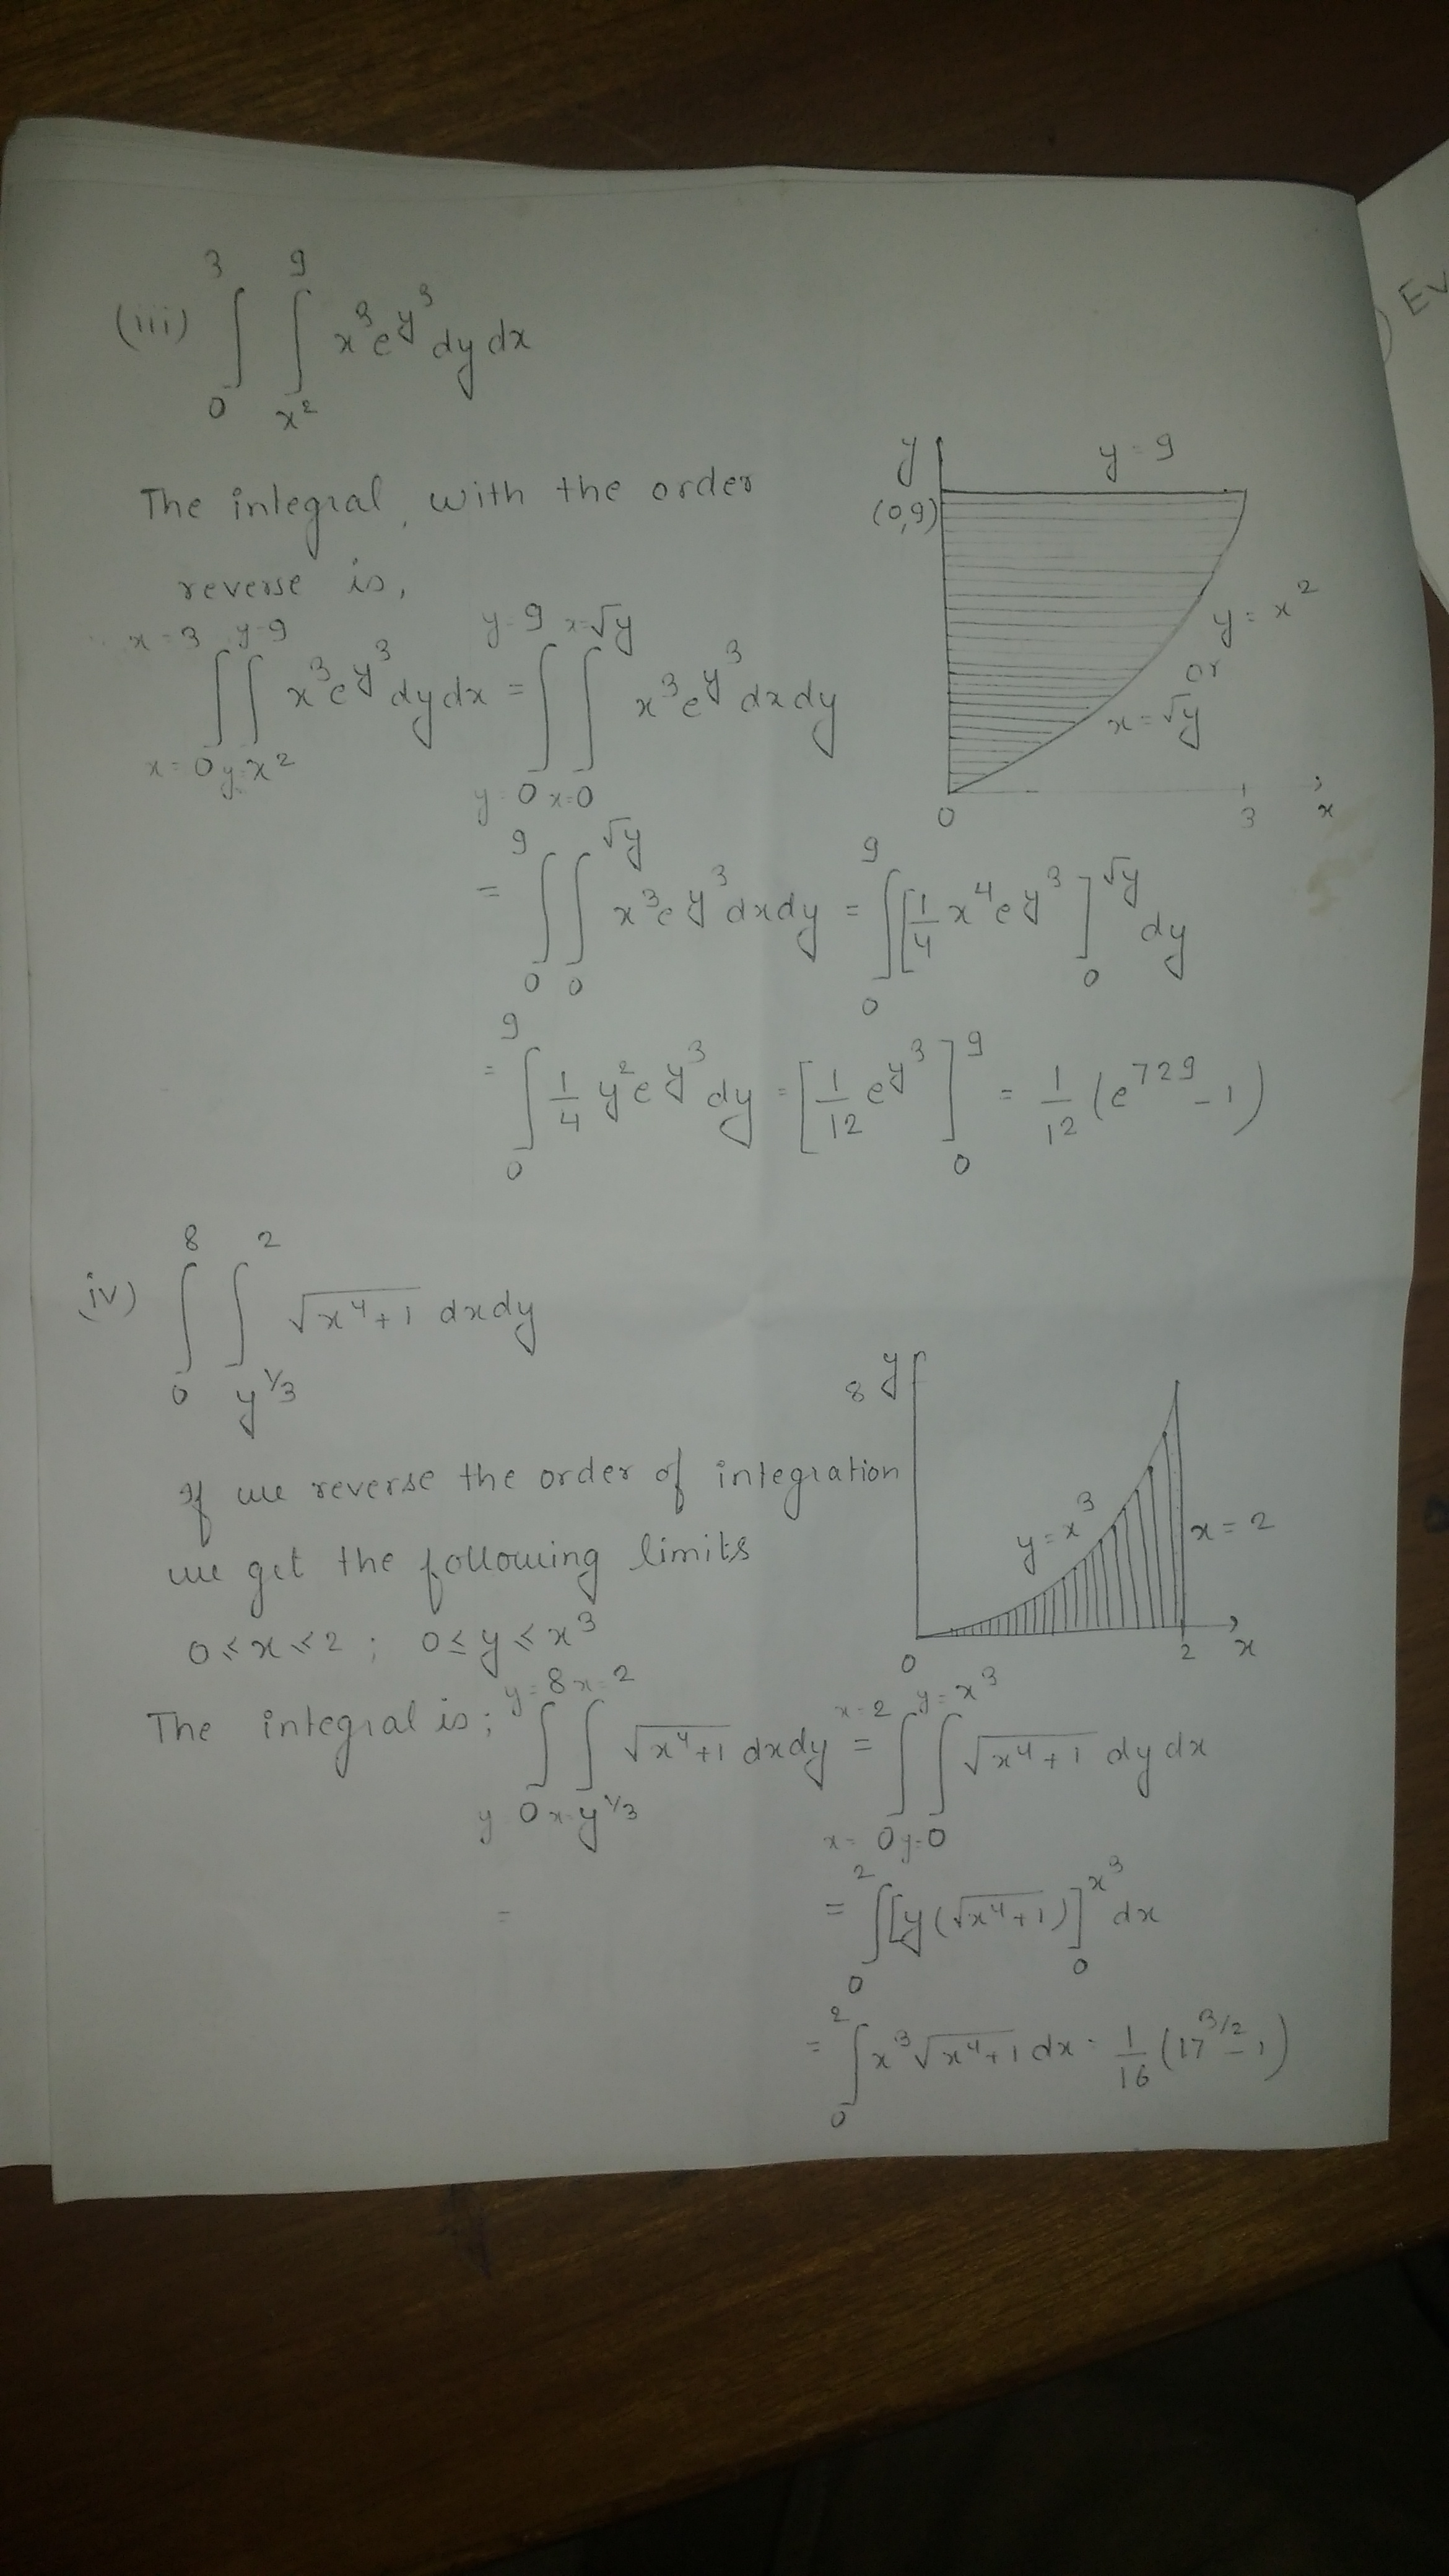 (iii) ∫₀³ ∫ₓ²⁹ x³e^y³ dy dx
The integral, with the order
reverse is,
∫_{x=0}^{x=3} ∫_{y=x²}^{y=9} x³e^{y³} dy dx = ∫_{y=0}^{y=9} ∫_{x=0}^{x=√y} x³e^{y³} dx dy
= ∫_0^9 ∫_0^{√y} x³e^{y³} dx dy = ∫_0^9 [1/4 x⁴e^{y³}]_0^{√y} dy
= ∫_0^9 1/4 y²e^{y³} dy = [1/12 e^{y³}]_0^9 = 1/12 (e^{729} - 1)
y
y = 9
(0,9)
y = x²
or
x = √y
0
3
x
(iv) ∫_0^8 ∫_{y^{1/3}}^2 √(x⁴+1) dx dy
If we reverse the order of integration
we get the following limits
0 ≤ x ≤ 2 ; 0 ≤ y ≤ x³
8 y
y = x³
x = 2
0
2
x
The integral is; ∫_{y=0}^{y=8} ∫_{x=y^{1/3}}^{x=2} √(x⁴+1) dx dy = ∫_{x=0}^{x=2} ∫_{y=0}^{y=x³} √(x⁴+1) dy dx
= = ∫_0^2 [y(√(x⁴+1))]_0^{x³} dx
= ∫_0^2 x³√(x⁴+1) dx = 1/16 (17^{3/2} - 1)